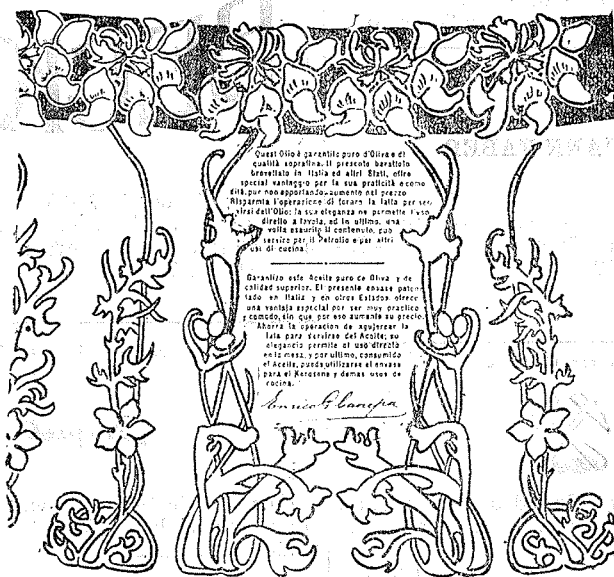 Quest'Olio è garantito puro d'Oliva e di
qualità sopraffina. Il presente barattolo
brevettato in Italia ed altri Stati, offre
special vantaggio per la sua praticità e como
dità, pur non apportando aumento nel prezzo
Risparmia l'operazione di forare la latta per ser
virsi dell'Olio; la sua eleganza ne permette l'uso
diretto a tavola, ed in ultimo, una
volta esaurito il contenuto, può
servire per il Petrolio e per altri
usi di cucina.
Garantizo este Aceite puro de Oliva y de
calidad superior. El presente envase paten
tado en Italia y en otros Estados ofrece
una ventaja especial por ser muy practico
y comodo, sin que por eso aumente su precio
Ahorra la operacion de agujerear la
lata para servirse del Aceite; su
elegancia permite el uso directo
en la mesa, y por ultimo, consumido
el Aceite, puede utilizarse el envase
para el Kerosene y demas usos de
cocina.
Enrico G. Canepa